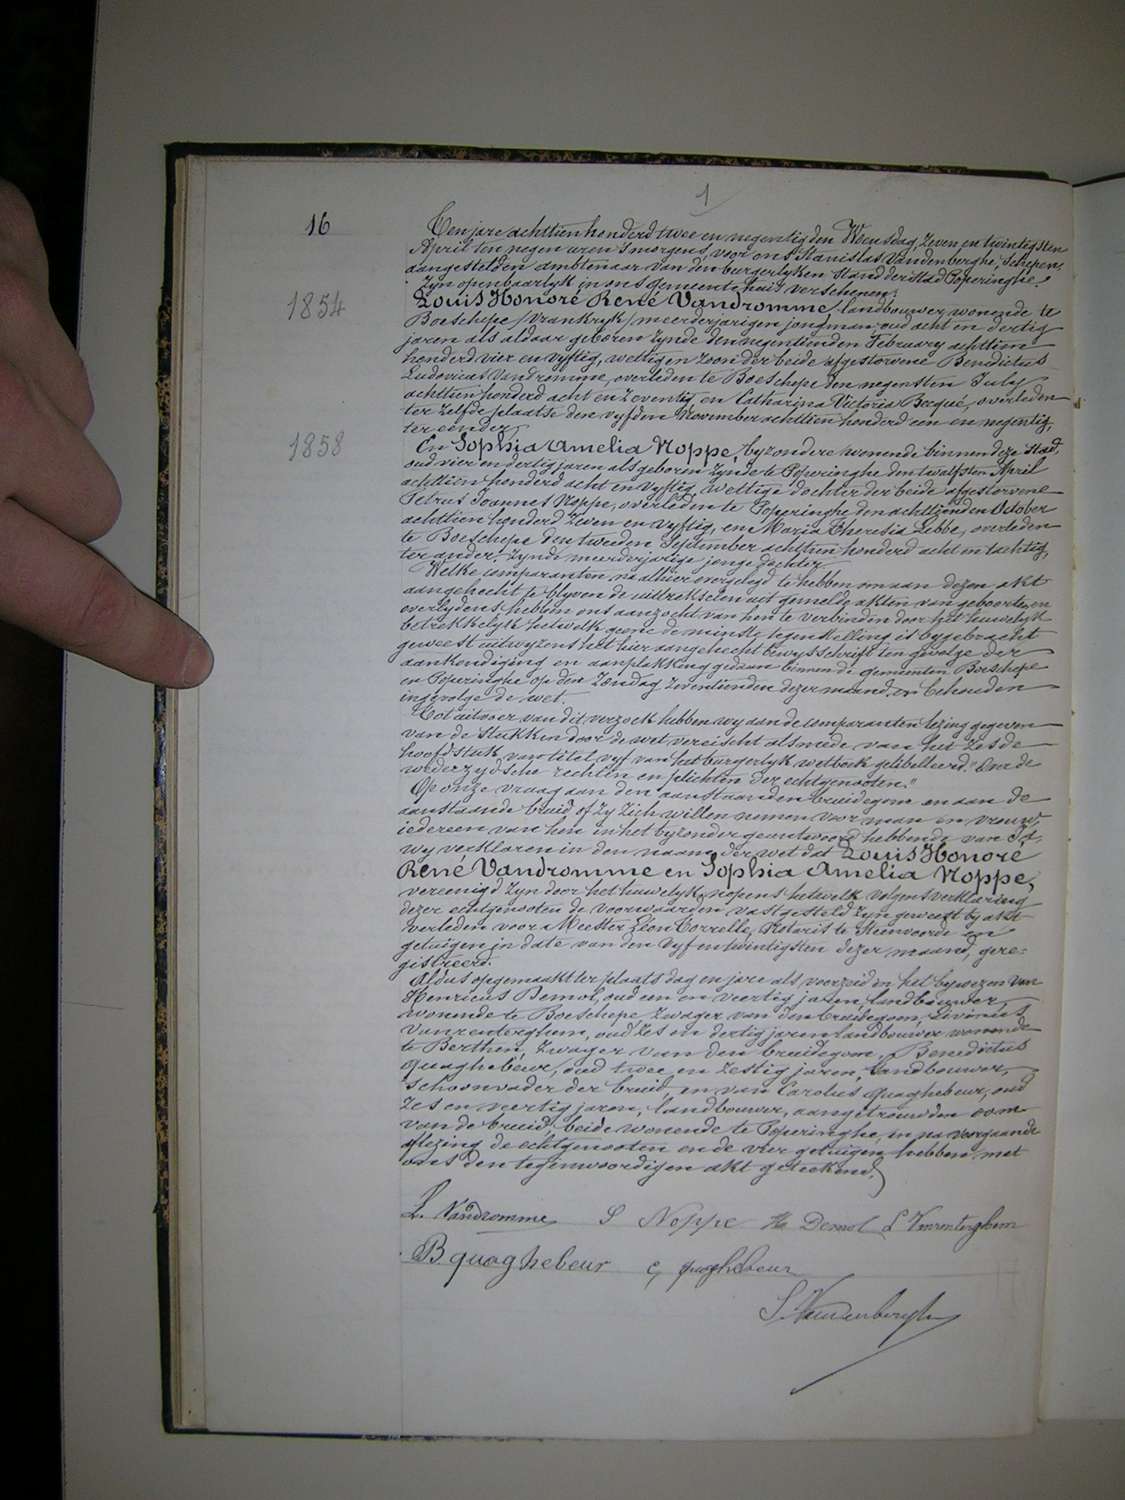 1
16
Ten jare achttien honderd twee en negentig den Weunsdag, zeven en twintigsten
April ten negen uren 's morgens, voor ons Stanislas Vandenberghe, Schepen,
aangestelden ambtenaar van den burgerlyken stand der stad Poperinghe,
zyn openbaarlyk in ons gemeentehuis verschenen:
1854
Louis Honoré René Vandromme, landbouwer, wonende te
Boeschepe /Vrankryk/ meerderjarigen jongman oud acht en dertig
jaren als aldaar geboren zynde den negentienden February achttien
honderd vier en vyftig, wettigen zoon der beide afgestorvene Benedictus
Ludovicus Vandromme, overleden te Boeschepe den negensten July
achttien honderd acht en zeventig, en Catharina Victoria Becqué, overleden
ter zelfde plaatse den vyfden November achttien honderd een en negentig,
ter eender
1858
En Sophia Amelia Noppe, byzondere wonende binnen deze stad,
oud vier en dertig jaren als geboren zynde te Poperinghe den twalfsten April
achttien honderd acht en vyftig, wettige dochter der beide afgestorvene
Petrus Joannes Noppe, overleden te Poperinghe den achttienden October
achttien honderd zeven en vyftig, en Maria Theresia Lebbe, overleden
te Boeschepe den tweeden September achttien honderd acht en tachtig,
ter ander, zynde meerderjarige jonge dochter
Welke comparanten na alhier overgelegd te hebben om aan dezen akt
aangehecht te blyven de uittrekselen uit gemelde akten van geboorte en
overlydens hebben ons aanzocht van hen te verbinden door het huwelyk
betrekkelyk hetwelk geene de minste tegenstelling is bygebracht
geweest uitwyzens het hier aangehecht bewysschrift ten gevolge der
aankondiging en aanplakking gedaan binnen de gemeenten Boeschepe
en Poperinghe op den Zondag zeventienden dezer maand en behouden
ingevolge de wet.
Tot uitvoer van dit verzoek hebben wy aan de comparanten lezing gegeven
van de stukken door de wet vereischt alsmede van het zesde
hoofdstuk van titel vyf van het burgerlyk wetboek gelibelleerd "Over de
wederzydsche rechten en plichten der echtgenooten."
Op onze vraag aan den aanstaanden bruidegom en aan de
aanstaande bruid of zy zich willen nemen voor man en vrouw,
iedereen van hen in het byzonder geantwoord hebbende van Ja,
wy verklaren in den naam der wet dat Louis Honoré
René Vandromme en Sophia Amelia Noppe,
vereenigd zyn door het huwelyk, nopens hetwelk volgens verklaring
dezer echtgenooten de voorwaarden vastgesteld zyn geweest by akt
verleden voor Meester Léon Correlle, Notaris te Steenvoorde en
getuigen in date van den vyf en twintigsten dezer maand, gere=
gistreerd.
Aldus opgemaakt ter plaats dag en jare als voorzeid in het bywezen van
Henricus Demol, oud een en veertig jaren, landbouwer,
wonende te Boeschepe, zwager van den bruidegom, Livinus
Vanrenterghem, oud zes en dertig jaren landbouwer wonende
te Berthen, zwager van den bruidegom, Benedictus
Quaghebeur, oud twee en zestig jaren, landbouwer,
schoonvader der bruid, en van Carolus Quaghebeur, oud
zes en veertig jaren, landbouwer, aangetrouwden oom
van de bruid, beide wonende te Poperinghe, en na voorgaande
aflezing de echtgenooten en de vier getuigen hebben met
ons den tegenwoordigen akt geteekend.
L. Vandromme S Noppe H Demol L Vanrenterghem
B. quaghebeur C, quaghebeur
S. Vandenberghe